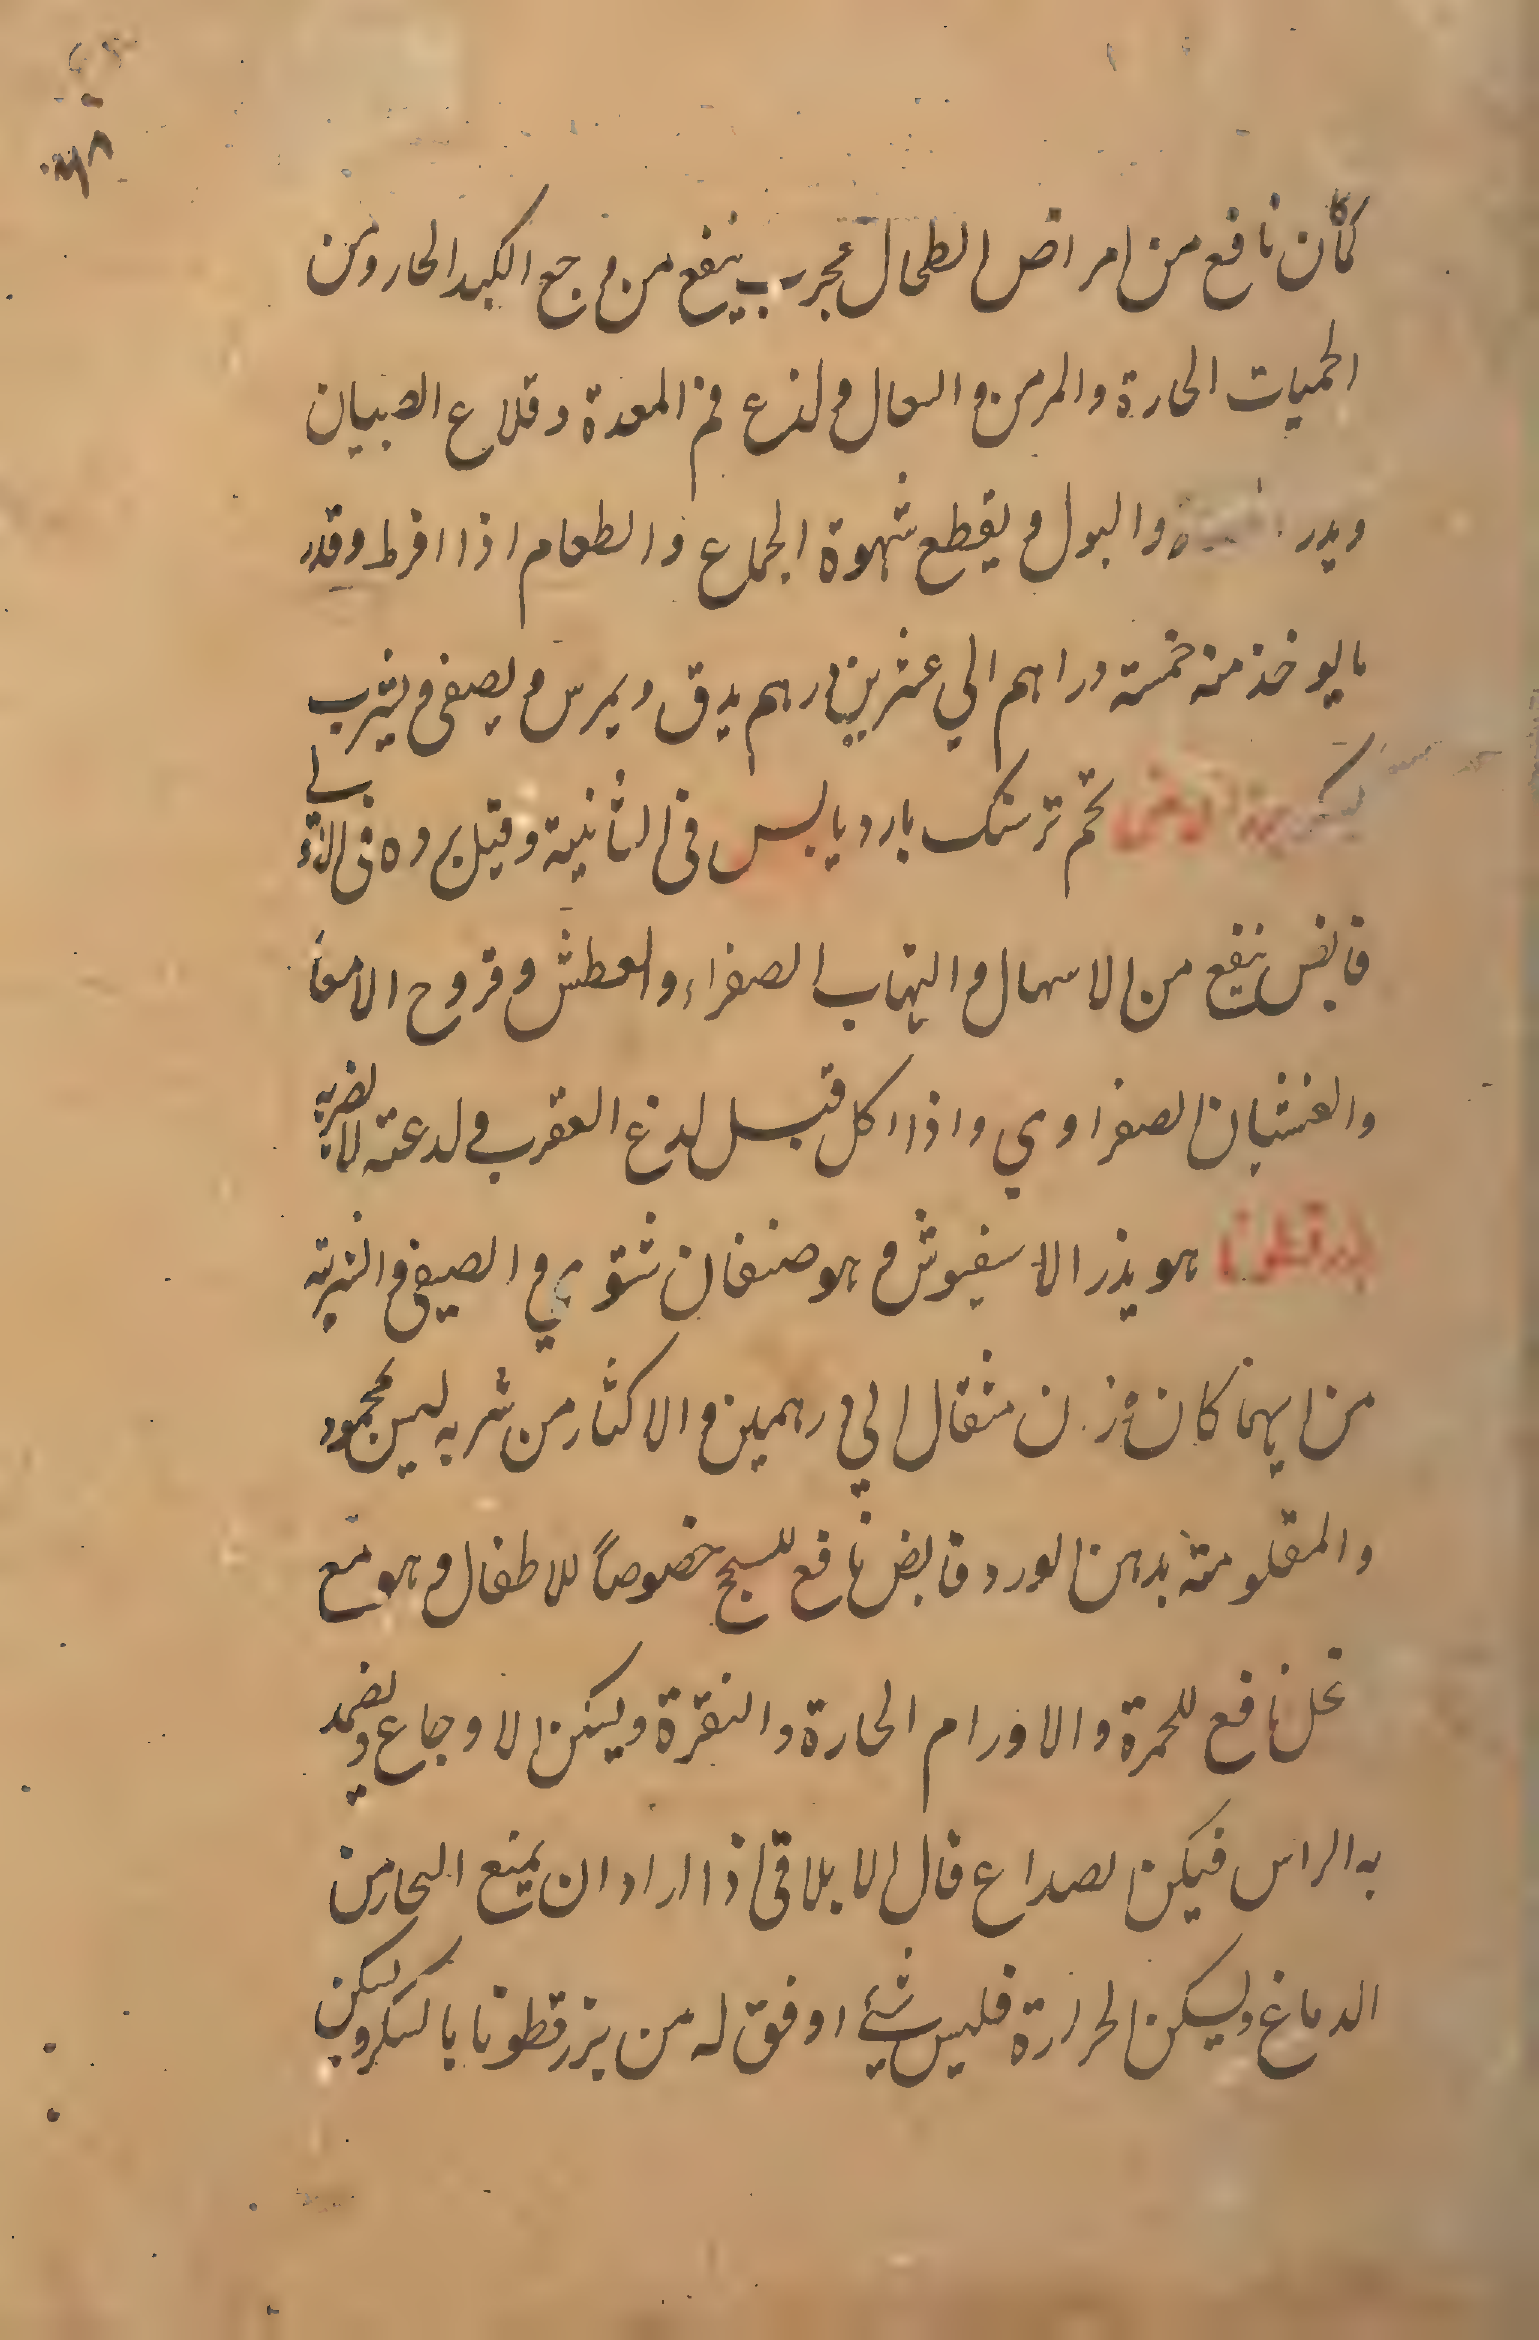 كأن نافع من امراض الطحال مجرب ينفع من وجع الكبد الحار ومن
الحميات الحارة والمزمن والسعال ولذع فم المعدة وقلاع الصبيان
ويدر والبول ويقطع شهوة الجماع والطعام اذا افرط وقدر
مايوخذ منه خمسة دراهم الي عشرين درهم يدق ويمرس ويصفى ويشرب
تخم ترشك بارد يابس فى الثانية وقيل برده فى الاولى
قابض ينفع من الاسهال والتهاب الصفراء والعطش وقروح الامعا
والغشيان الصفراوي واذا اكل قبل لدغ العقرب ولدعته لا يضر به
بزرقطونا هو بذر الاسفيوش وهو صنفان شتوي والصيفى والشربة
من ايهما كان وزن مثقال الي درهمين والاكثار من شربه ليس بمحمود
والمقلو منه بدهن الورد قابض نافع للسحج خصوصاً للاطفال وهو مع
خل نافع للحمرة والاورام الحارة والنقرة ويسكن الاوجاع ويضمد
به الراس فيكن لصداع قال الابلاقى اذا اراد ان يمنع البخار من
الدماغ ويسكن الحرارة فليس شيئ اوفق له من بزرقطونا بالسكر ويسكن